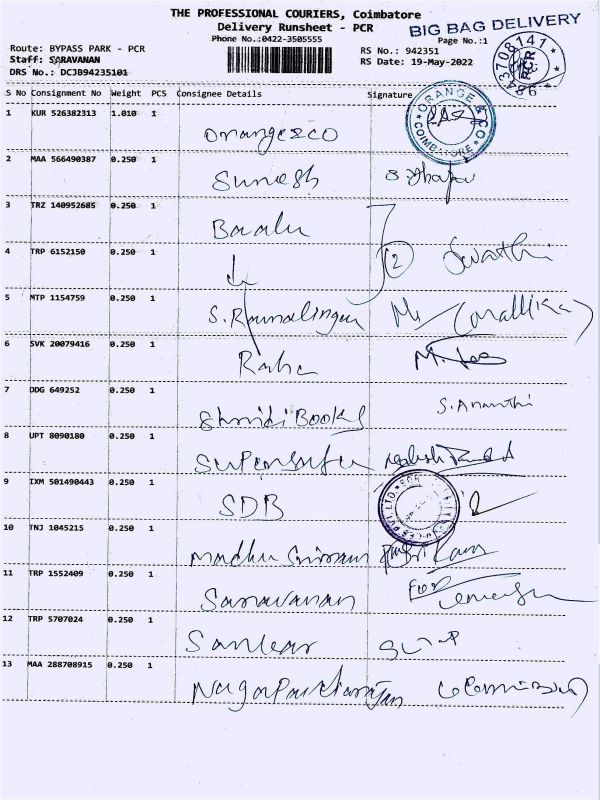 THE PROFESSIONAL COURIERS, Coimbatore
Delivery Runsheet - PCR
BIG BAG DELIVERY
Phone No.:0422-3505555
Page No.:1
Route: BYPASS PARK - PCR
RS No.: 942351
Staff: SARAVANAN
RS Date: 19-May-2022
DRS No.: DCJB94235101
9843708147
PCR
S No Consignment No Weight PCS Consignee Details Signature
1 KUR 526382313 1.010 1 Orangesco
ORANGE & CO
COIMBATORE
2 MAA 566490387 0.250 1 Suresh
3 TRZ 140952685 0.250 1 Baalu
4 TRP 6152150 0.250 1 ↓ 2 Swathi
5 MTP 1154759 0.250 1 S. Ramalingam (Mallika)
6 SVK 20079416 0.250 1
7 DDG 649252 0.250 1 Shridi Books S. Ananthi
8 UPT 8090180 0.250 1
9 IXM 501490443 0.250 1 SDB
10 TNJ 1045215 0.250 1 Madhu
11 TRP 1552409 0.250 1 Saravanan
12 TRP 5707024 0.250 1 Sankar
13 MAA 288708915 0.250 1